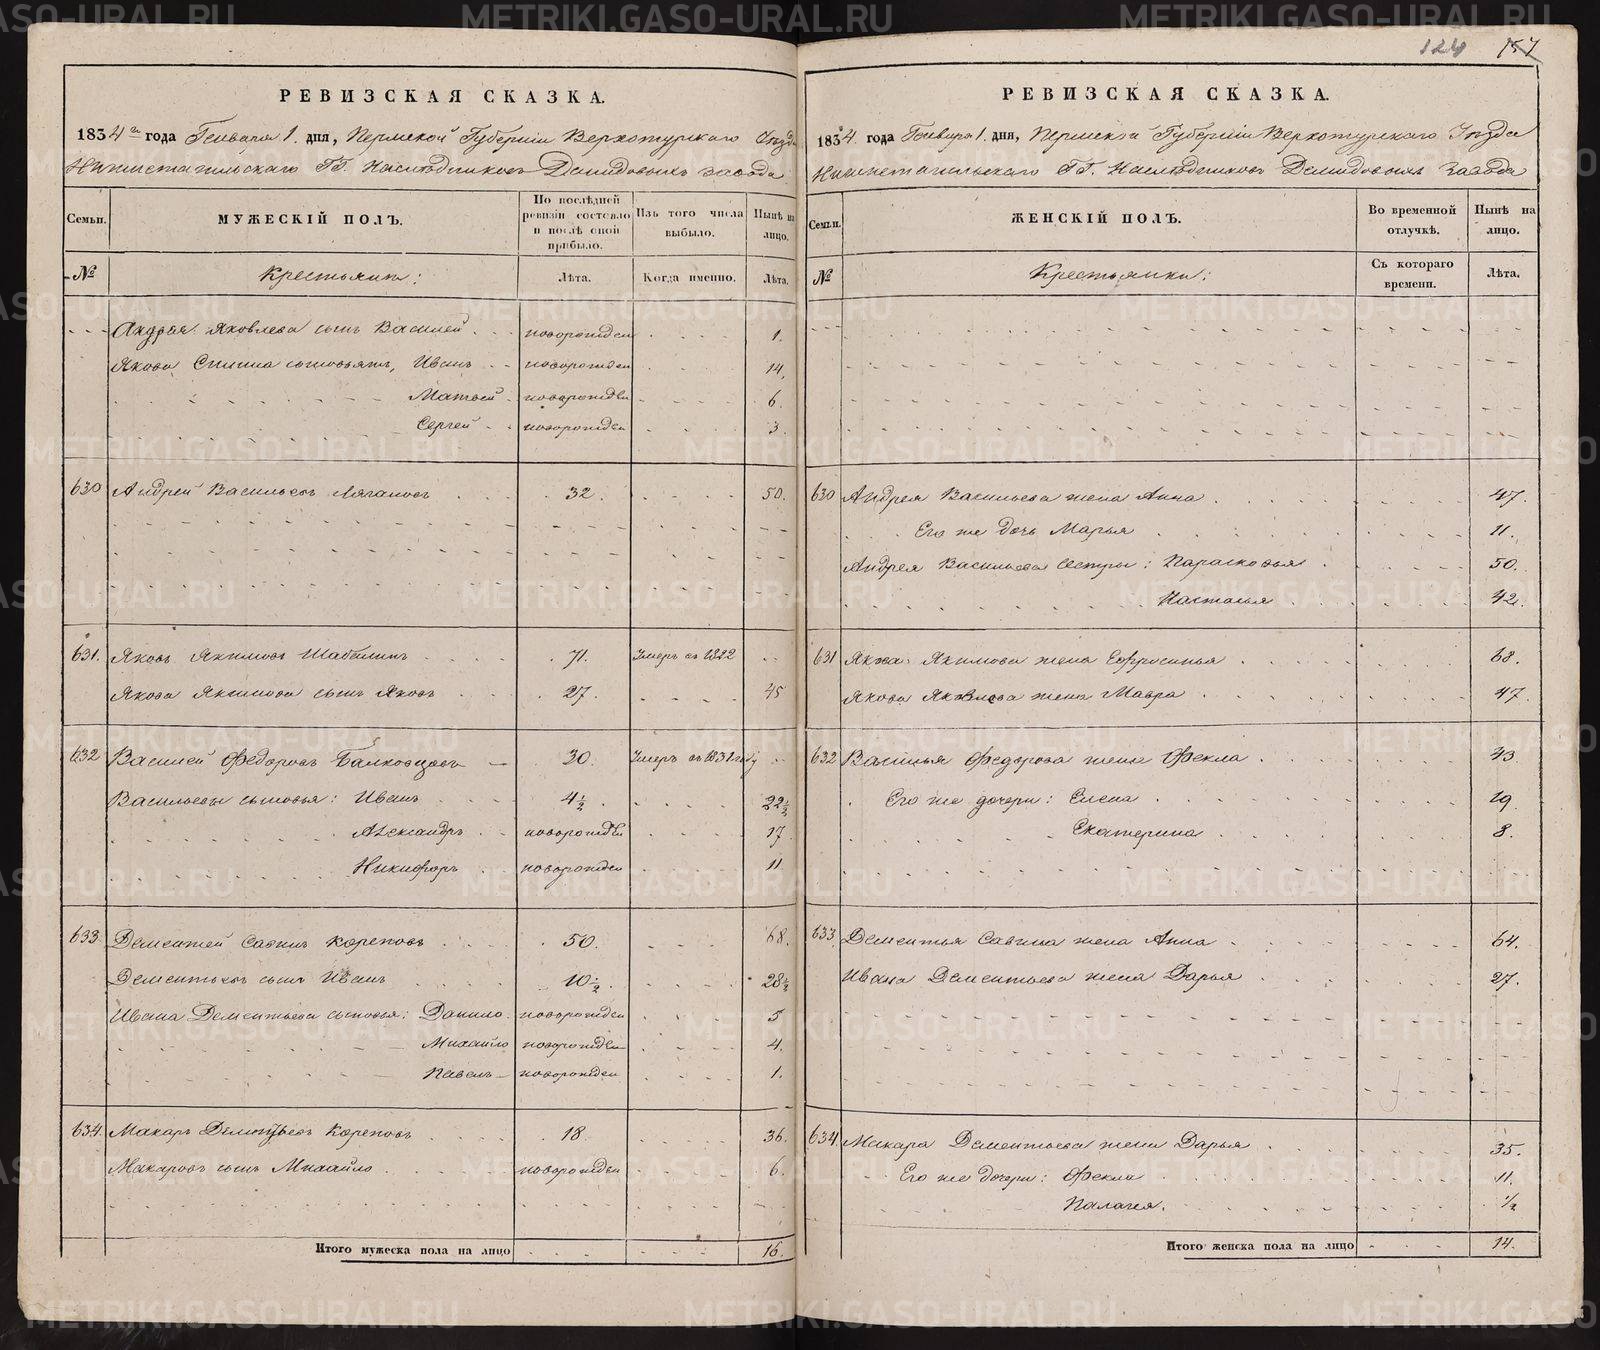 124 157
РЕВИЗСКАЯ СКАЗКА.
1834 го года Генваря 1. дня, Пермской Губернiи Верхотурскаго Уѣзда
Нижнетагильскаго ГГ. Наслѣдниковъ Демидовыхъ завода
Семьи. МУЖЕСКІЙ ПОЛЪ. По послѣдней ревизіи состояло и послѣ оной прибыло. Изъ того числа выбыло. Нынѣ на лицо.
№ Крестьянъ: Лѣта. Когда именно. Лѣта.
Андрея Яковлева сынъ Василей новорожден 1.
Якова Сыновьямъ, Иванъ новорожден 14.
Матвей новорожден 6.
Сергей новорожден 3.
630 Андрей Васильевъ 32. 50.
631. Яковъ Якимовъ Шабалинъ 71. Умеръ въ 1822
Якова Якимова сынъ Яковъ 27. 45
632 Василей Федоровъ 30. Умеръ въ 1831 году
Васильевы сыновья: Иванъ 4½. 22½
Александръ новорожден 17.
Никифоръ новорожден 11
633. Дементей Савинъ Кореповъ 50. 68.
Дементьевъ сынъ Иванъ 10½. 28½
Ивана Дементьева сыновья: Данило новорожден 5
Михайло новорожден 4.
Павелъ новорожден 1.
634. Макаръ Дементьевъ Кореповъ 18. 36.
Макаровъ сынъ Михайло новорожден 6.
Итого мужеска пола на лицо 16.
РЕВИЗСКАЯ СКАЗКА.
1834. года Генваря 1. дня, Пермской Губернiи Верхотурскаго Уѣзда
Нижнетагильскаго ГГ. Наслѣдниковъ Демидовыхъ завода
Семьи. ЖЕНСКІЙ ПОЛЪ. Во временной отлучкѣ. Нынѣ на лицо.
№ Крестьянки: Съ котораго времени. Лѣта.
630 Андрея Васильева жена Анна 47.
Его же дочь Марья 11.
Андрея Васильева сестры: Парасковья 50.
Настасья 42.
631 Якова Якимова жена Ефросинья 68.
Якова Яковлева жена Мавра 47.
632 Василья Федорова жена Фекла 43
Его же дочери: Елена 19.
Екатерина 8.
633. Дементья Савина жена Анна 64.
Ивана Дементьева жена Дарья 27.
634 Макара Дементьева жена Дарья 35.
Его же дочери: Фекла 11.
Палагея. ½
Итого женска пола на лицо 14.
METRIKI.GASO-URAL.RU